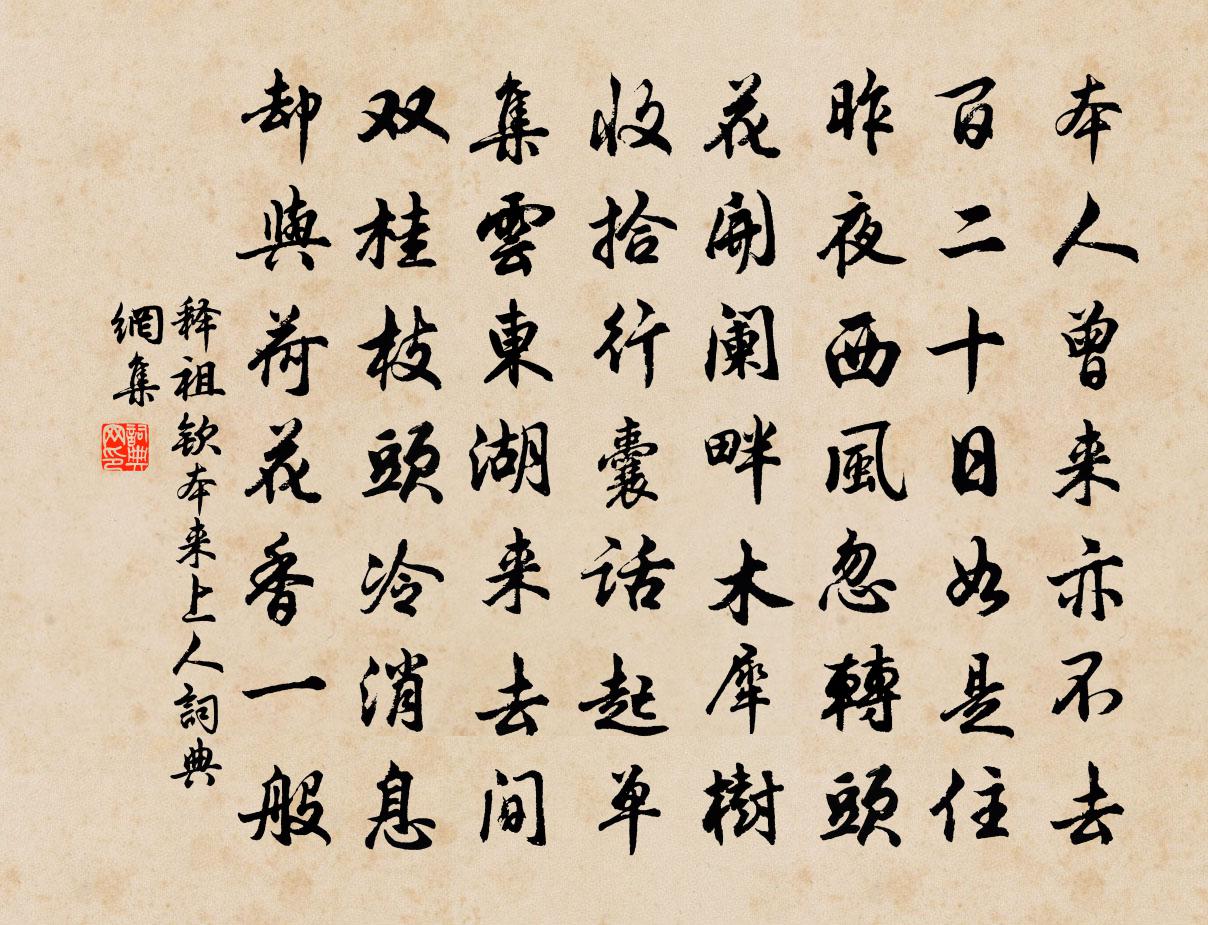 本人曾来亦不去
百二十日如是住
昨夜西風忽轉頭
花開闌畔木犀樹
收拾行囊話起单
集雲東湖来去间
双桂枝頭冷消息
却與荷花香一般
释祖欽本来上人詞典
網集
詞典
网印